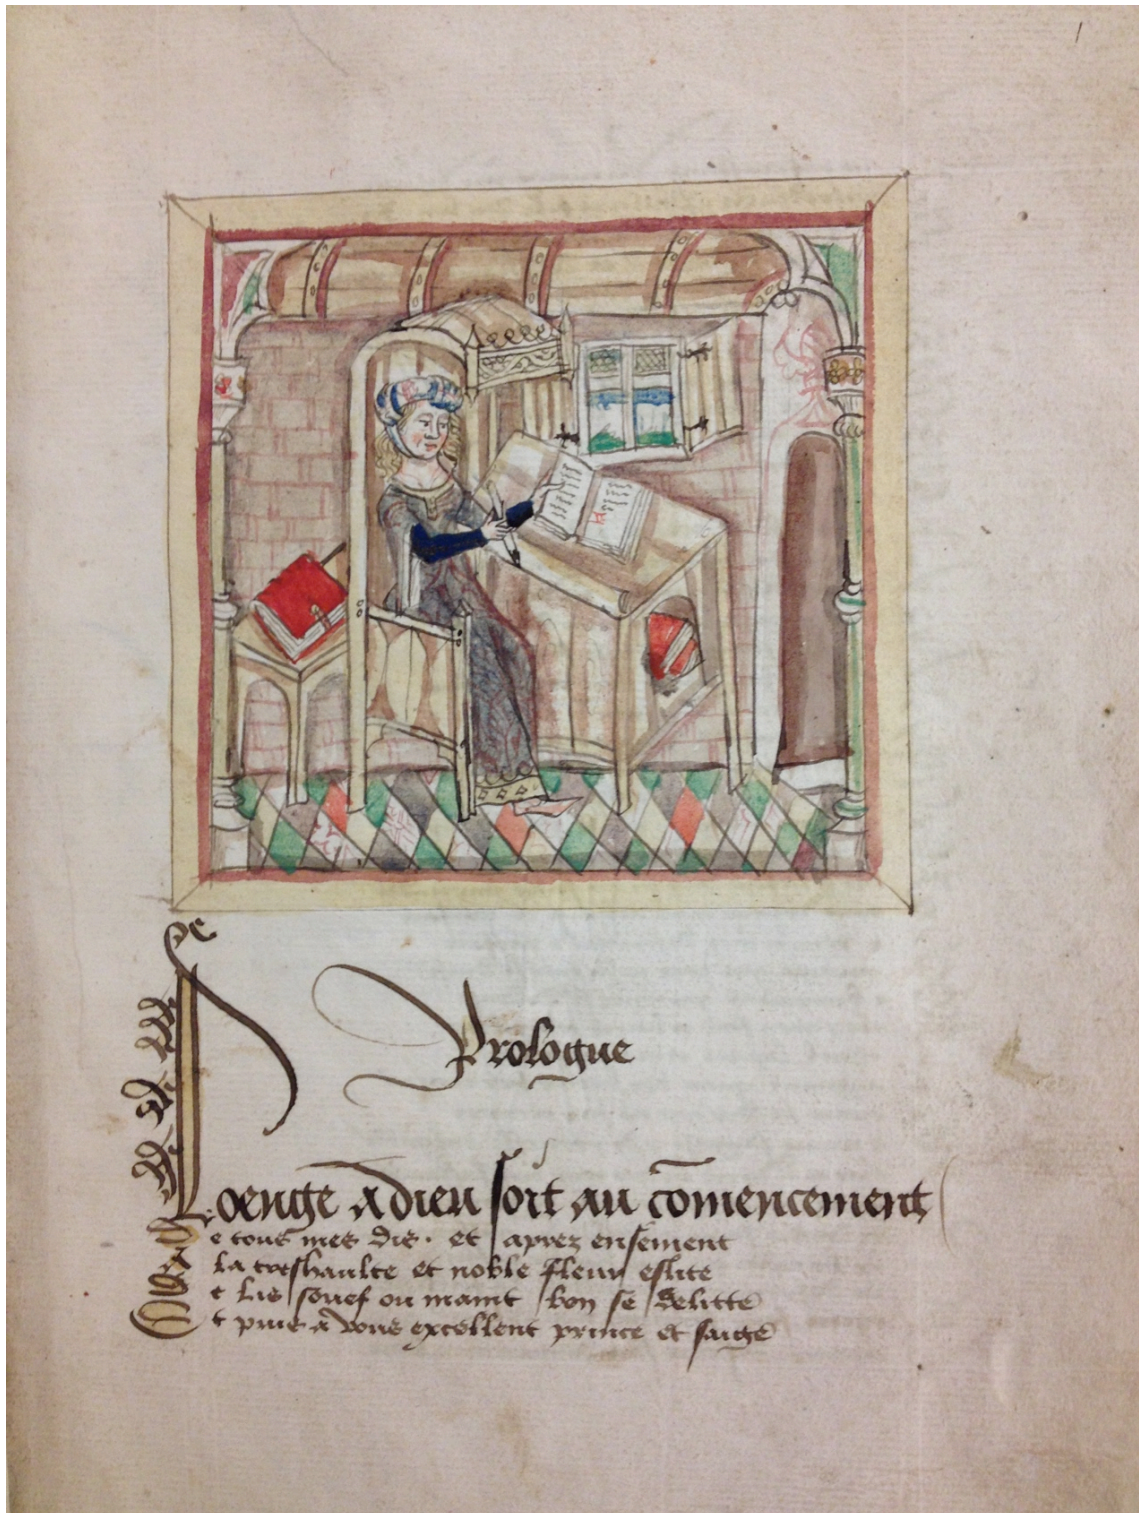 1
Prologue
Loenge a dieu soit au co̅mencement
e tous mes dis · et apres ensement
la treshaulte et noble fleur eslite
t lis souef ou maint bon se delitte
t puis a vous excellent prince et saige